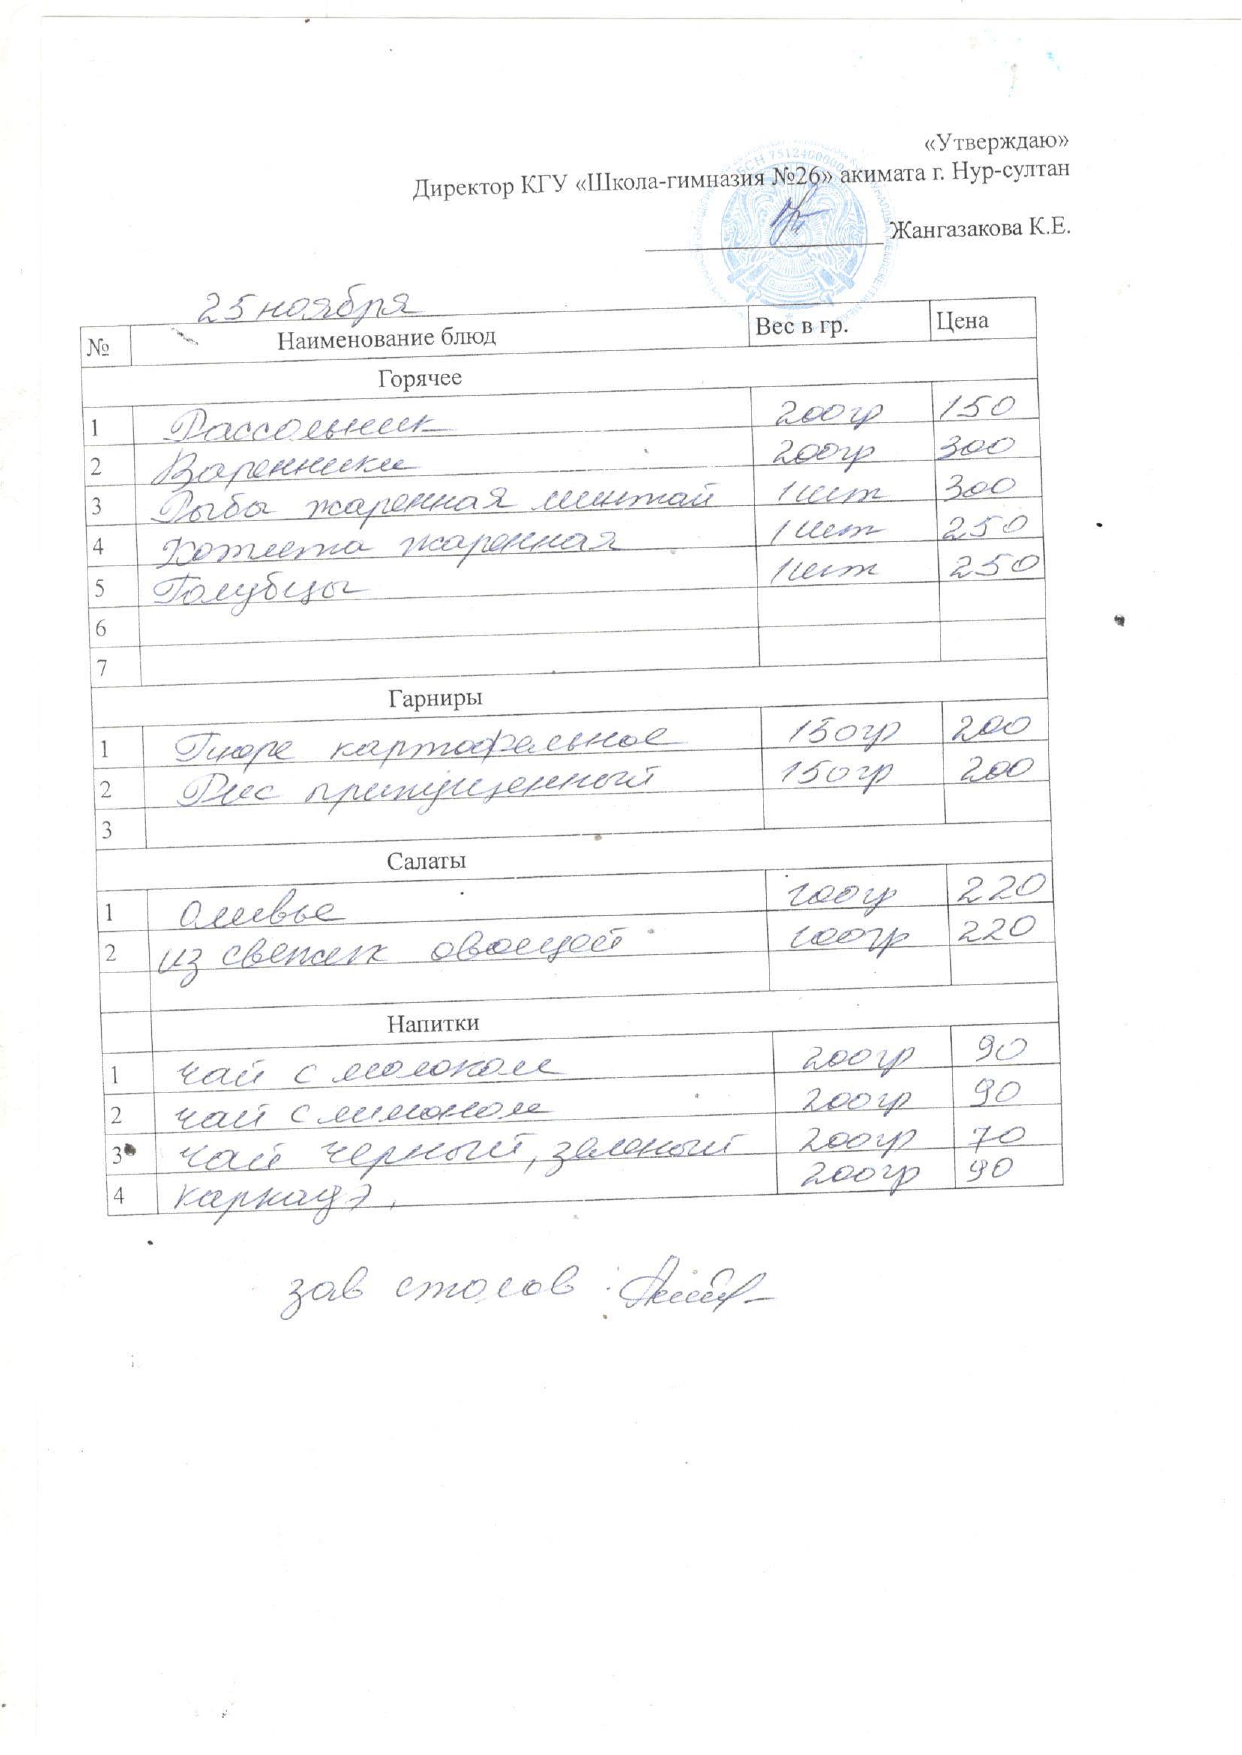 «Утверждаю»
Директор КГУ «Школа-гимназия №26» акимата г. Нур-султан
Жангазакова К.Е.
25 ноября
№ Наименование блюд Вес в гр. Цена
Горячее
1 Рассольник 200гр 150
2 Вареники 200гр 300
3 Рыба жаренная минтай 1шт 300
4 Котлета жаренная 1шт 250
5 Голубцы 1шт 250
6
7
Гарниры
1 Пюре картофельное 150гр 200
2 Рис припущенный 150гр 200
3
Салаты
1 Оливье 100гр 220
2 из свежих овощей 100гр 220
Напитки
1 чай с молоком 200гр 90
2 чай с лимоном 200гр 90
3 чай черный, зеленый 200гр 70
4 каркадэ, 200гр 90
зав столов: